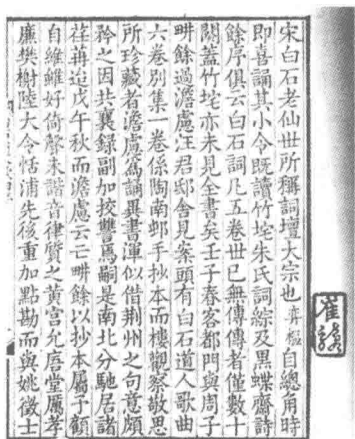 宋白石老仙世所稱詞壇大宗也弈樞自總角時
即喜誦其小令既讀竹垞朱氏詞綜及黑蝶齋詩
餘序俱云白石詞凡五卷世已無傳傳者僅數十
闋蓋竹垞亦未見全書矣壬子春客都門與周子
畊餘過澹慮汪君邸舍見案頭有白石道人歌曲
六卷別集一卷係陶南邨手抄本而樓觀察敬思
所珍藏者澹慮為誦異書渾似借荊州之句意頗
矜之因共襄錄副加挍讐焉嗣是南北分馳居諸
荏苒迨戊午秋而澹慮云亡畊餘以抄本屬予顧
自維雖好倚聲未諳音律質之黃宮允唐堂厲孝
廉樊榭陸大令恬浦先後重加點勘而與姚徵士